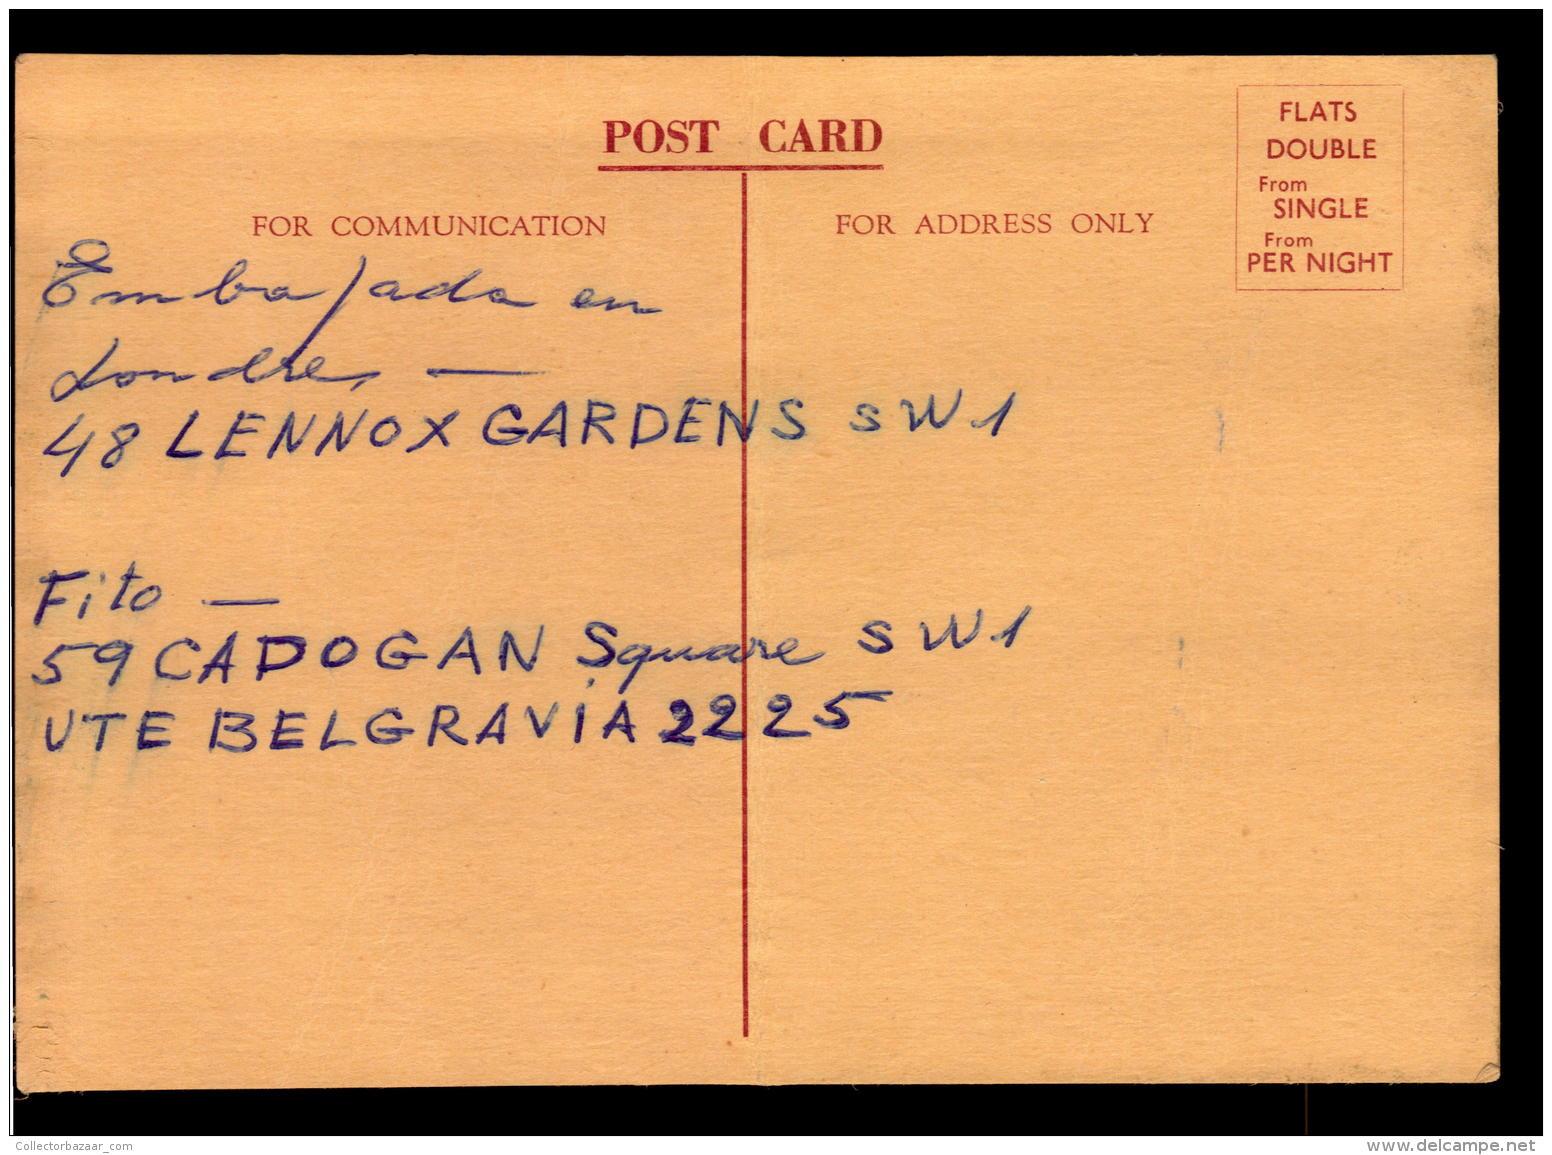 POST CARD
FOR COMMUNICATION
FOR ADDRESS ONLY
FLATS
DOUBLE
From
SINGLE
From
PER NIGHT
Embajada en
Londres —
48 LENNOX GARDENS SW1
Fito —
59 CADOGAN Square SW1
UTE BELGRAVIA 2225
Collectorbazaar_com
www.delcampe.net